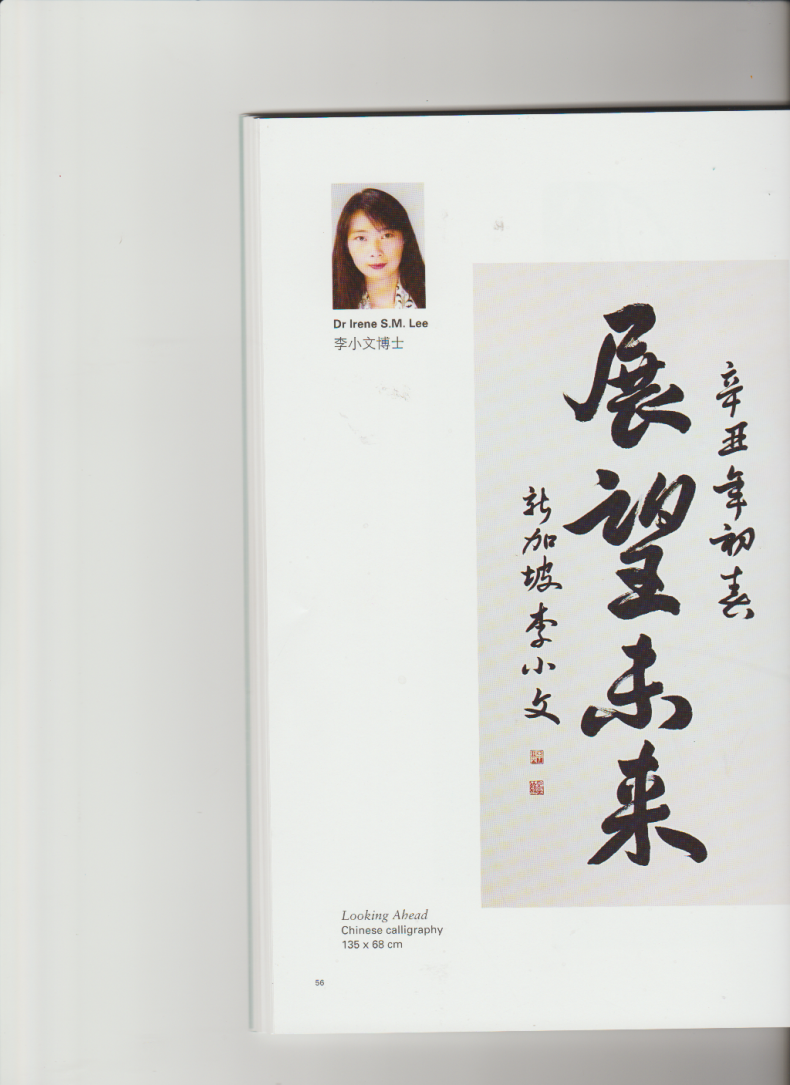 Dr Irene S.M. Lee
李小文博士
辛丑年初春
展望未来
新加坡 李小文
Looking Ahead
Chinese calligraphy
135 x 68 cm
56